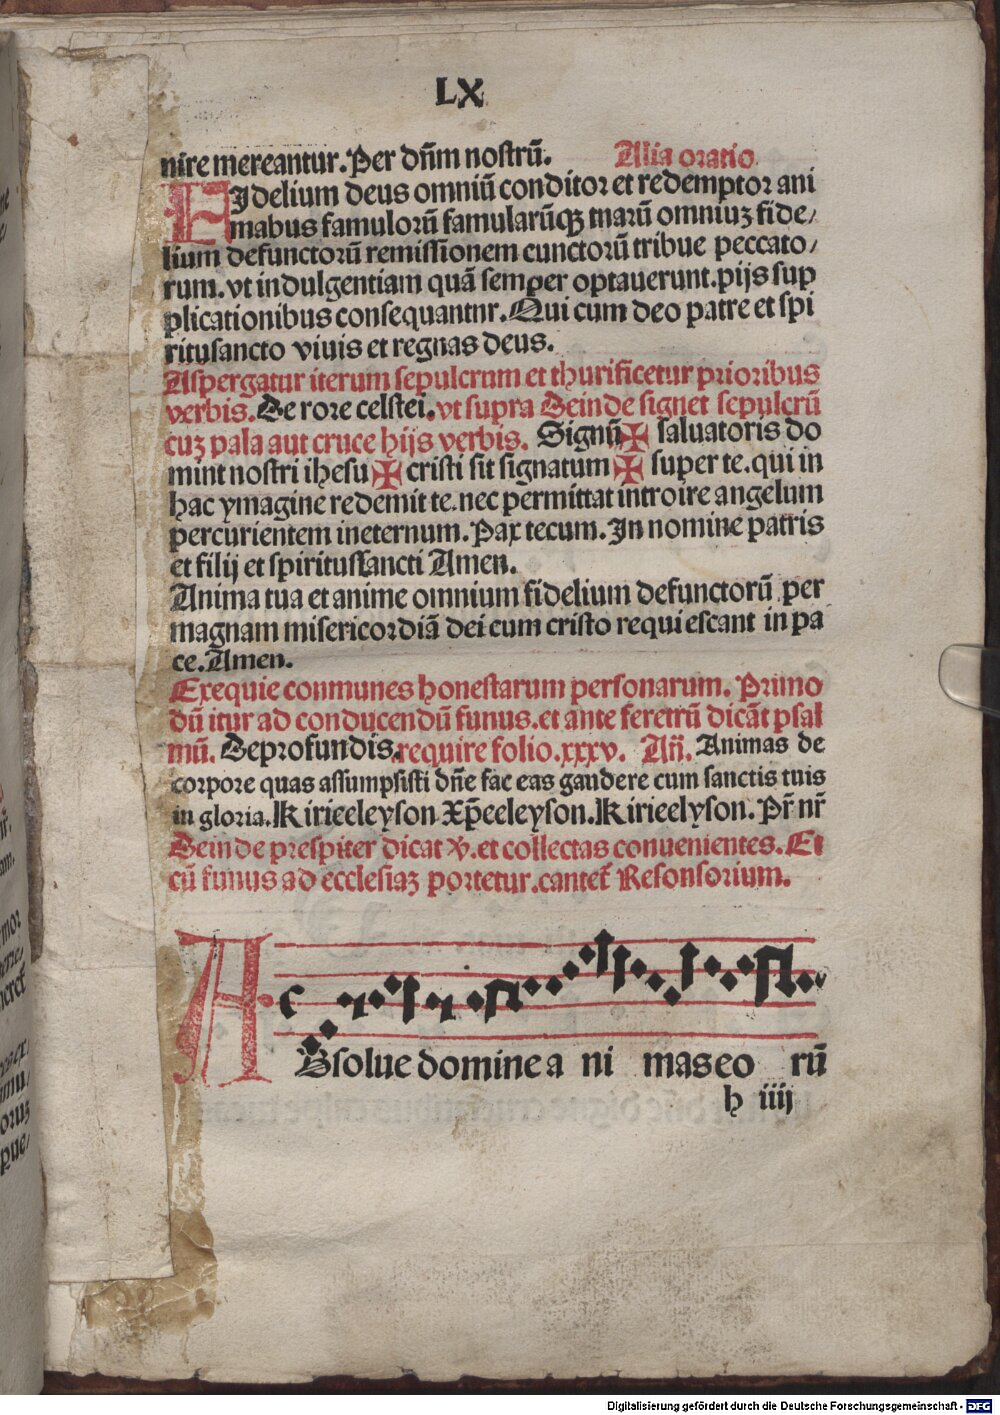 LX
nire mereantur. Per dn̄m nostrū. Alia oratio
FIdelium deus omniū conditor et redemptor ani
mabus famulorū famularūqꝫ tuarū omniuꝫ fide/
lium defunctorū remissionem cunctorū tribue peccato/
rum. vt indulgentiam quā semper optauerunt. pijs sup
plicationibus consequantnr. Qui cum deo patre et spi
ritusancto viuis et regnas deus.
Aspergatur iterum sepulcrum et thurificetur prioribus
verbis. De rore celstei. vt supra Deinde signet sepulcrū
cuꝫ pala aut cruce hijs verbis. Signū ✠ saluatoris do
mint nostri ihesu ✠ cristi sit signatum ✠ super te. qui in
hac ymagine redemit te. nec permittat introire angelum
percurientem ineternum. Pax tecum. In nomine patris
et filij et spiritussancti Amen.
Anima tua et anime omnium fidelium defunctorū per
magnam misericordiā dei cum cristo requiescant in pa
ce. Amen.
Exequie conmunes honestarum personarum. Primo
dū itur ad conducendū funus. et ante feretrū dicāt psal
mū. Deprofundis. require folio. xxxv. Añ. Animas de
corpore quas assumpsisti dn̄e fac eas gaudere cum sanctis tuis
in gloria. Kirieeleyson Xp̄eeleyson. Kirieelyson. Pr̄ nr̄
Deinde prespiter dicat ℣. et collectas conuenientes. Et
cū funus ad ecclesiaꝫ portetur. cantet̄ Resonsorium.
ABsolue domine a ni mas eo rū
h iiij
Digitalisierung gefördert durch die Deutsche Forschungsgemeinschaft - DFG